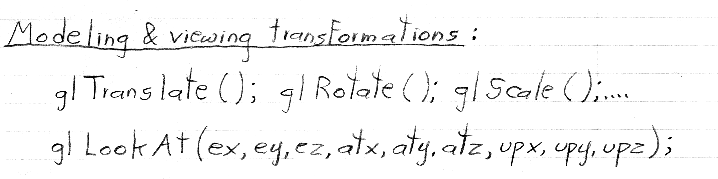 Modeling & viewing transformations:
glTranslate(); glRotate(); glScale();....
glLookAt(ex, ey, ez, atx, aty, atz, upx, upy, upz);